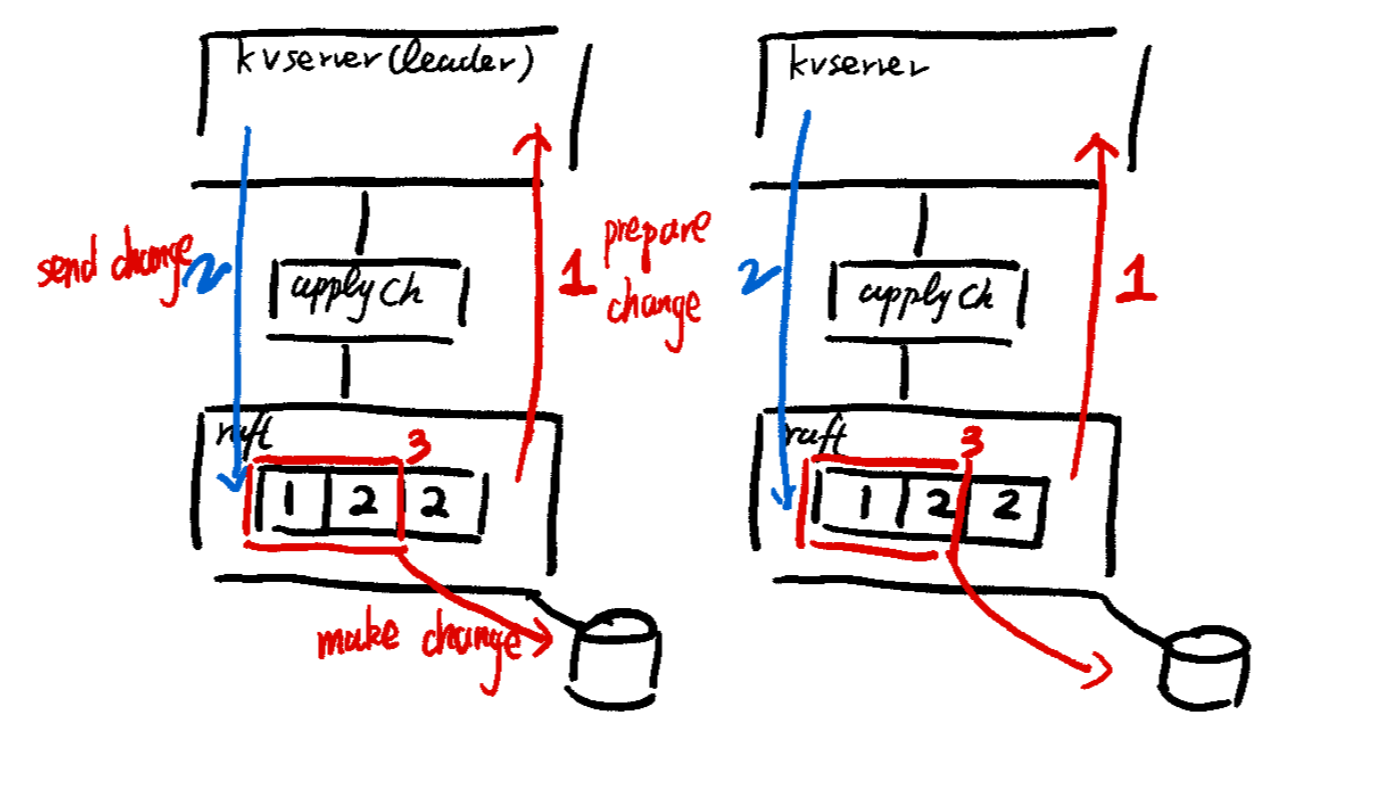 kvserver(leader)
send change
2
applych
1
prepare
change
raft
3
1 2 2
make change
kvserver
2
applych
1
raft
3
1 2 2